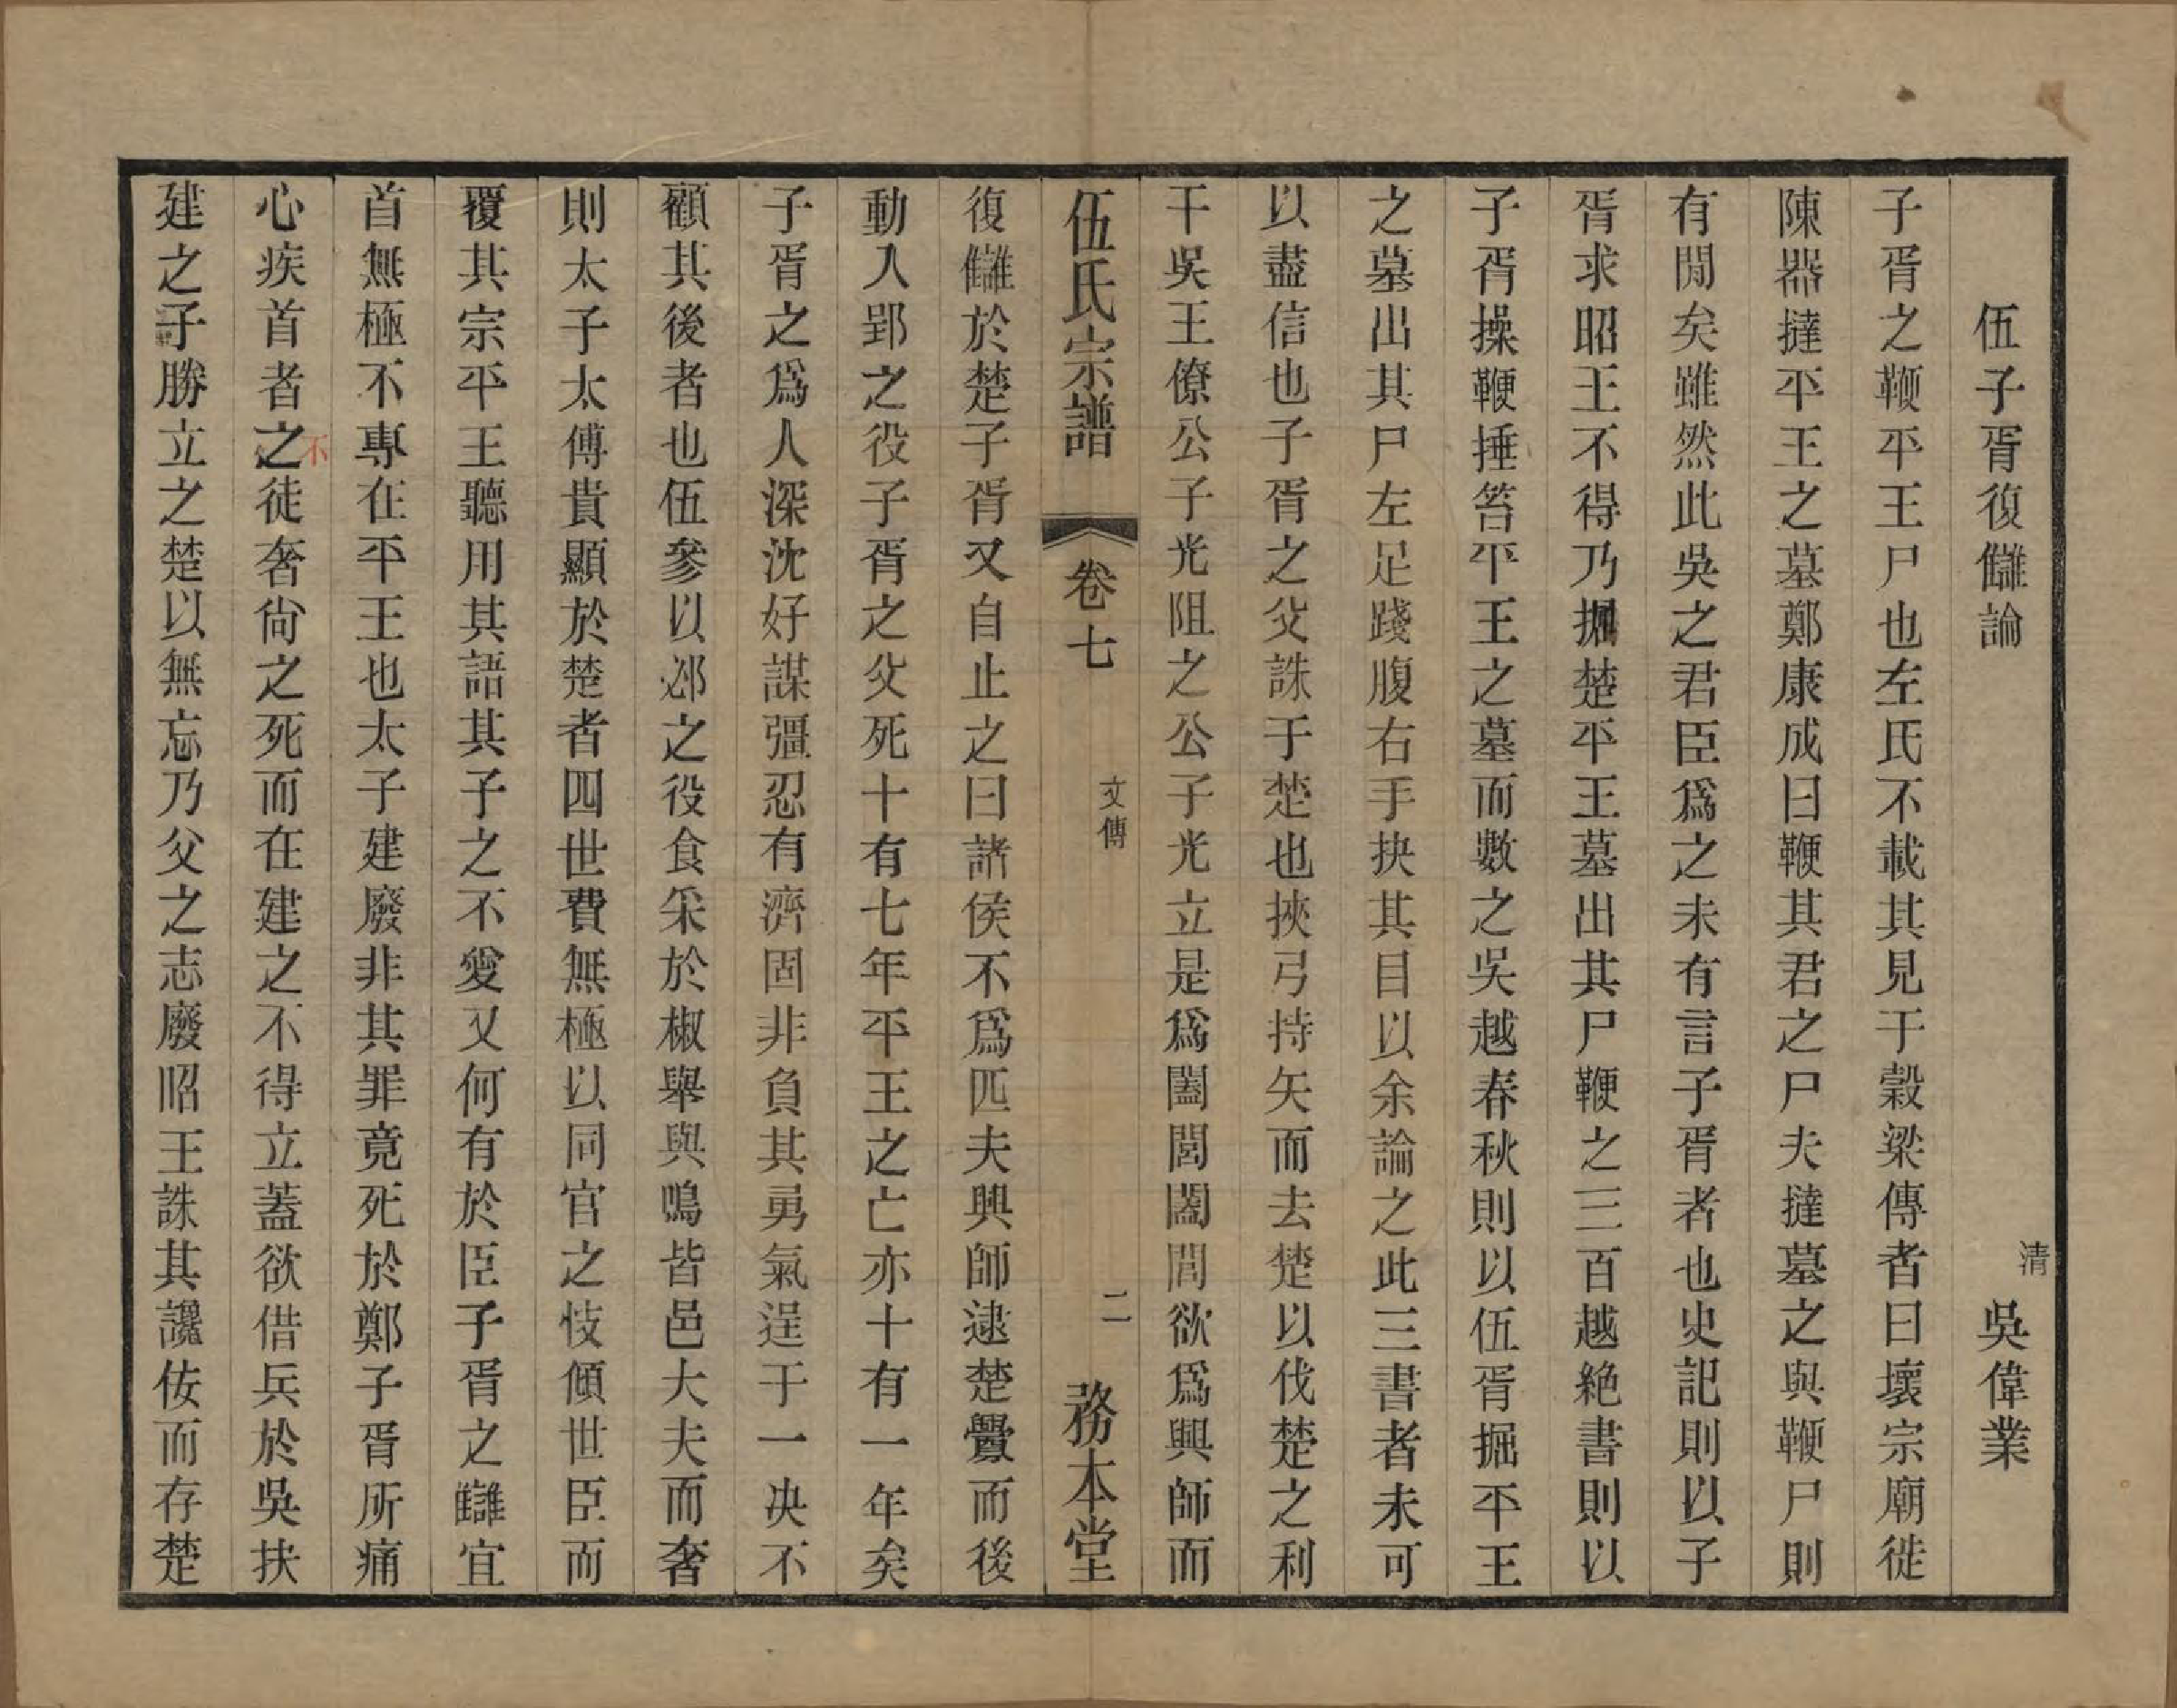 伍子胥復讎論　清　吳偉業
子胥之鞭平王尸也左氏不載其見于穀梁傳者曰壞宗廟徙
陳器撻平王之墓鄭康成曰鞭其君之尸夫撻墓之與鞭尸則
有閒矣雖然此吳之君臣爲之未有言子胥者也史記則以子
胥求昭王不得乃掘楚平王墓出其尸鞭之三百越絕書則以
子胥操鞭捶笞平王之墓而數之吳越春秋則以伍胥掘平王
之墓出其尸左足踐腹右手抉其目以余論之此三書者未可
以盡信也子胥之父誅于楚也挾弓持矢而去楚以伐楚之利
干吳王僚公子光阻之公子光立是爲闔閭闔閭欲爲興師而
伍氏宗譜　卷七　文傳　二　務本堂
復讎於楚子胥又自止之曰諸侯不爲匹夫興師逮楚釁而後
動入郢之役子胥之父死十有七年平王之亡亦十有一年矣
子胥之爲人深沈好謀彊忍有濟固非負其勇氣逞于一决不
顧其後者也伍參以邲之役食采於椒舉與鳴皆邑大夫而奢
則太子太傅貴顯於楚者四世費無極以同官之忮傾世臣而
覆其宗平王聽用其語其子之不愛又何有於臣子胥之讎宜
首無極不專在平王也太子建廢非其罪竟死於鄭子胥所痛
心疾首者之不徒奢尙之死而在建之不得立蓋欲借兵於吳抉
建之子勝立之楚以無忘乃父之志廢昭王誅其讒佞而存楚